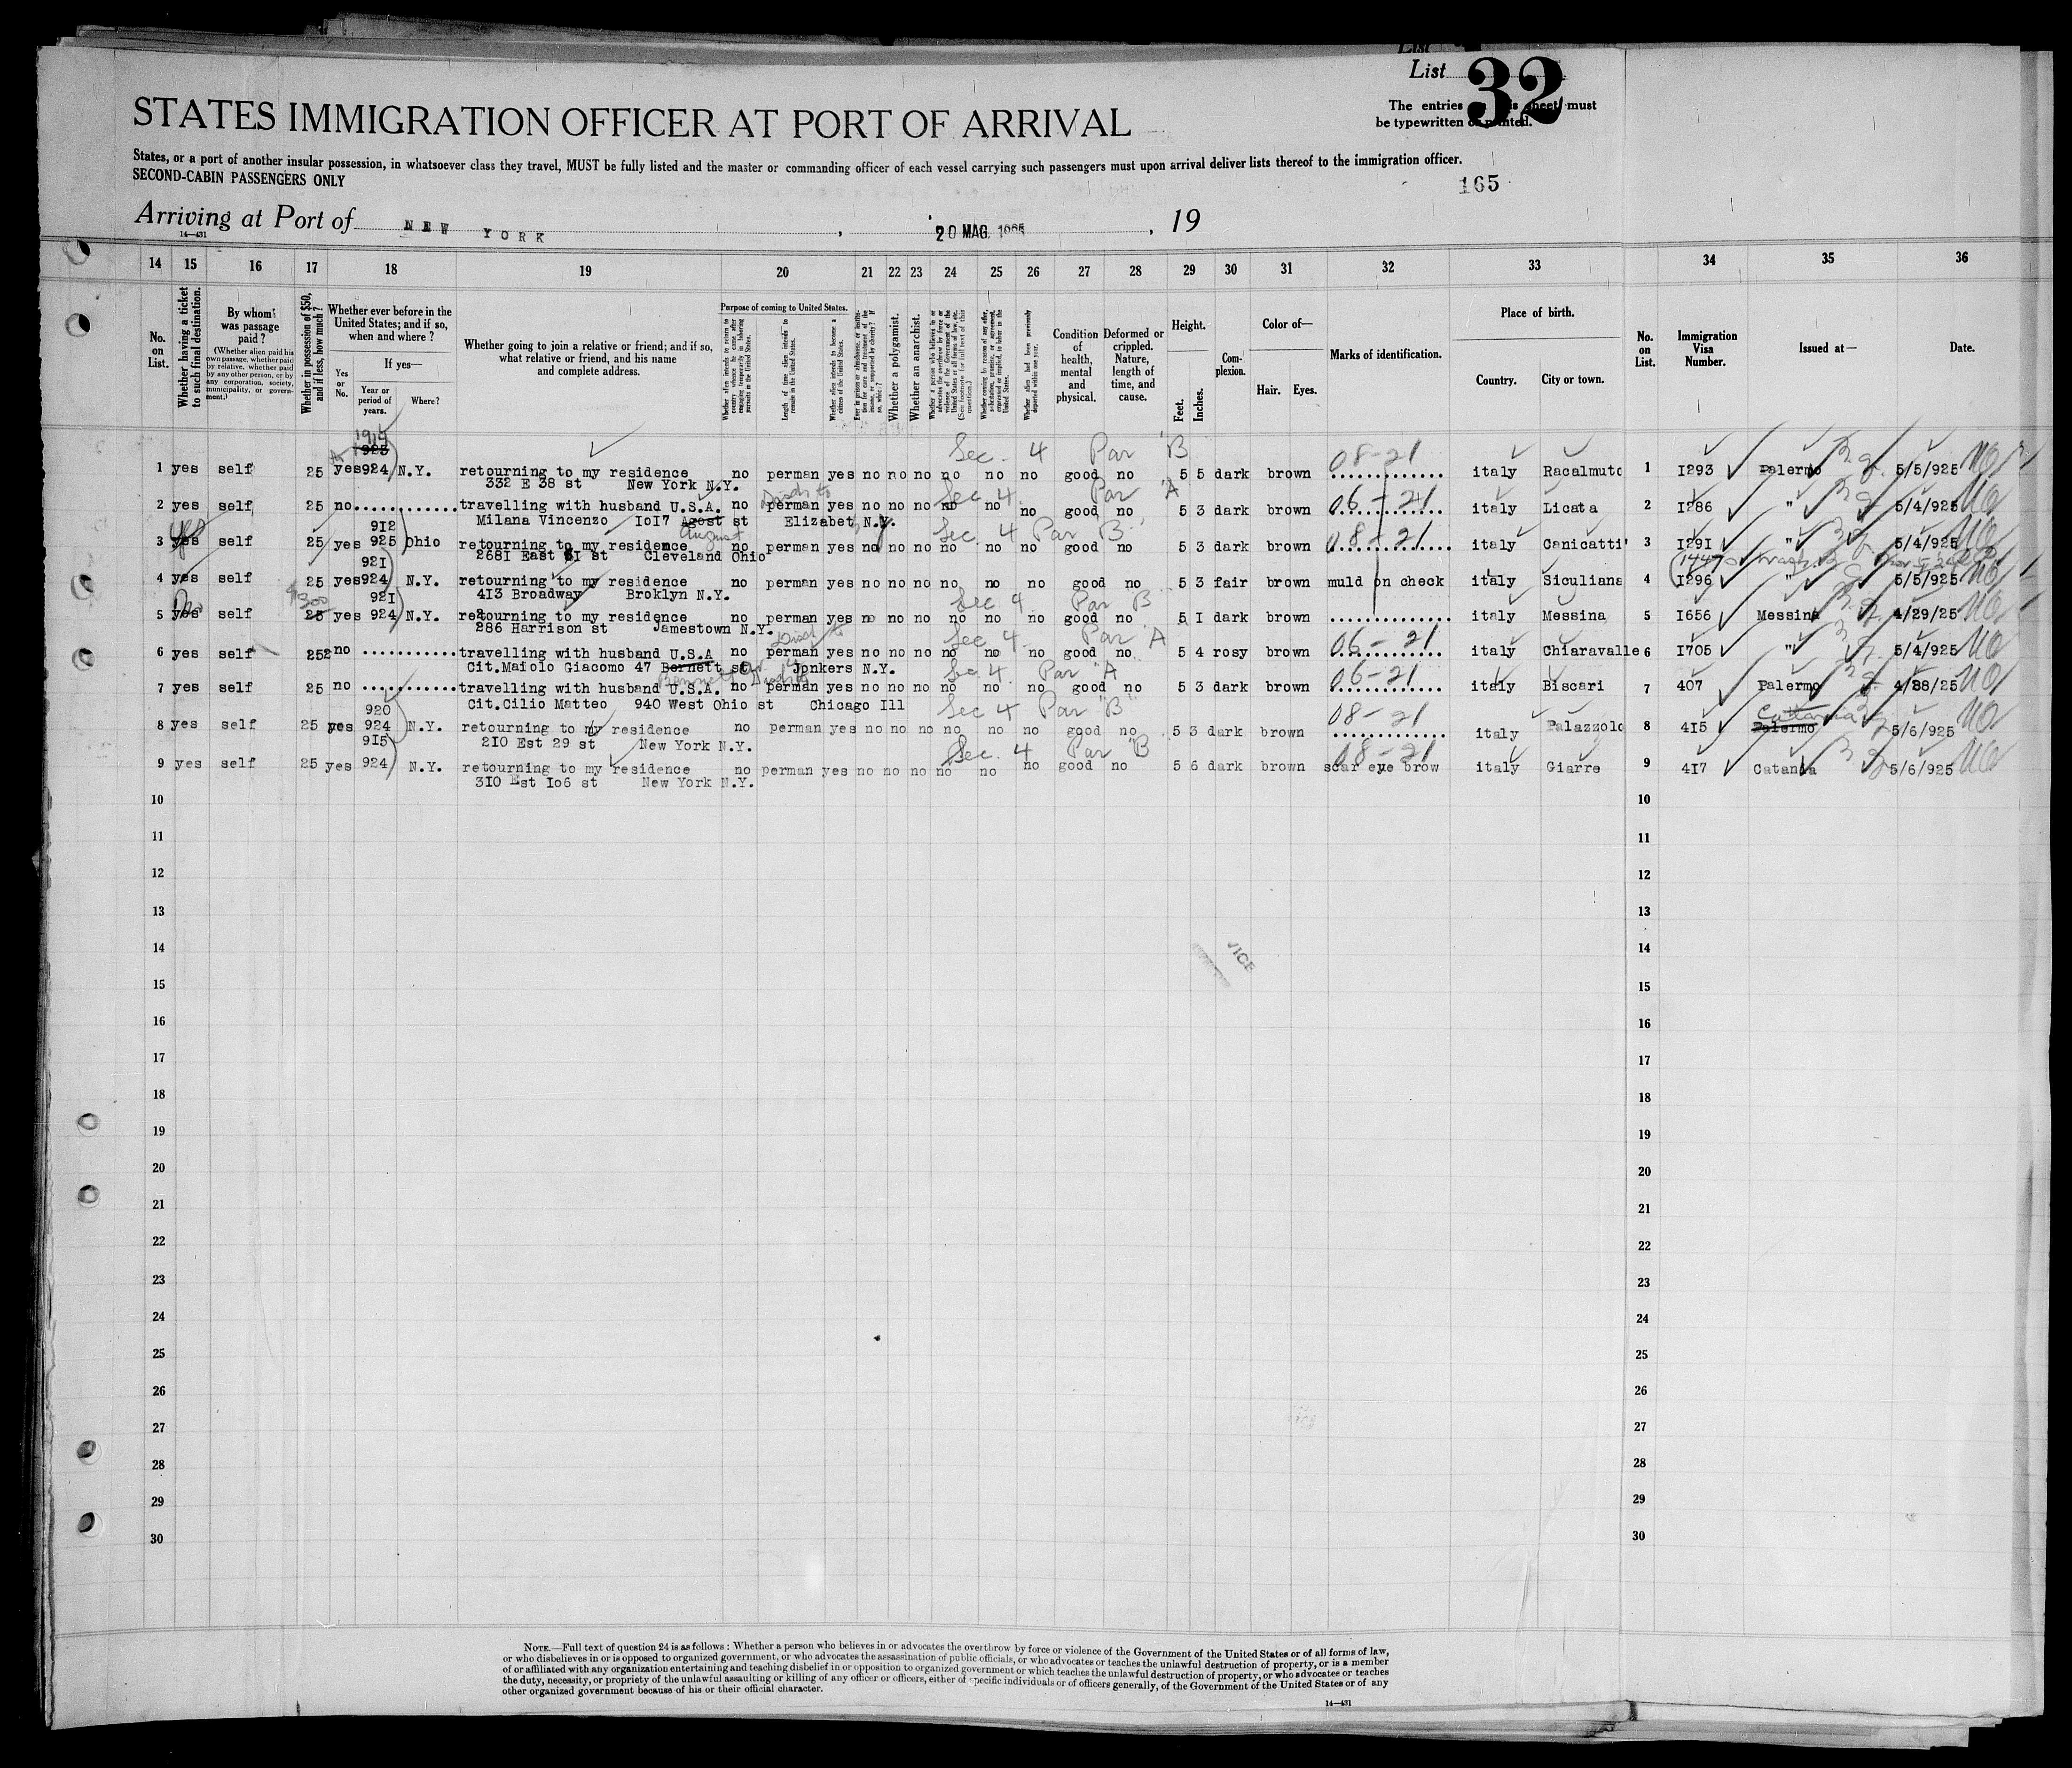 List 32
The entries on this sheet must
be typewritten or printed.
STATES IMMIGRATION OFFICER AT PORT OF ARRIVAL
States, or a port of another insular possession, in whatsoever class they travel, MUST be fully listed and the master or commanding officer of each vessel carrying such passengers must upon arrival deliver lists thereof to the immigration officer.
SECOND-CABIN PASSENGERS ONLY
165
Arriving at Port of NEW YORK, 20 MAG. 1925, 19
14—431
14 15 16 17 18 19 20 21 22 23 24 25 26 27 28 29 30 31 32 33 34 35 36
No. on List.
Whether having a ticket to such final destination.
By whom was passage paid?
(Whether alien paid his own passage, whether paid by relative, whether paid by any other person, or by any corporation, society, municipality, or government.)
Whether in possession of $50, and if less, how much?
Whether ever before in the United States; and if so, when and where?
If yes—
Yes or No.
Year or period of years.
Where?
Whether going to join a relative or friend; and if so, what relative or friend, and his name and complete address.
Purpose of coming to United States.
Length of time alien intends to remain in the United States.
Whether alien intends to become a citizen of the United States.
Whether a polygamist.
Whether an anarchist.
Condition of health, mental and physical.
Deformed or crippled. Nature, length of time, and cause.
Height.
Feet. Inches.
Complexion.
Color of—
Hair. Eyes.
Marks of identification.
Place of birth.
Country. City or town.
No. on List.
Immigration Visa Number.
Issued at—
Date.
1919
923 Sec. 4 Par "B" 08-21
1 yes self 25 yes 924 N.Y. retourning to my residence no perman yes no no no no no no good no 5 5 dark brown ............. italy Racalmuto 1 I293 Palermo 5/5/925 NO
332 E 38 st New York N.Y. Sec 4. Par "A" 06-21
2 yes self 25 no............ travelling with husband U.S.A. no perman yes no no no no no no good no 5 3 dark brown ............. italy Licata 2 I286 " 5/4/925 NO
912 Milana Vincenzo IoI7 Agost st Elizabet N.Y.
yes August Sec. 4 Par B" 08-21
3 yes self 25 yes 925 Ohio retourning to my residence no perman yes no no no no no no good no 5 3 dark brown ............. italy Canicatti' 3 I29I " 5/4/925 NO
921 268I East 8I st Cleveland Ohio
4 yes self 25 yes 924 N.Y. retourning to my residence no perman yes no no no no no no good no 5 3 fair brown muld on check italy Siculiana 4 I296 " 5/5/925 NO
92I 4I3 Broadway Broklyn N.Y. Sec. 4 Par B
5 yes self 25 yes 924 N.Y. retourning to my residence no perman yes no no no no no no good no 5 I dark brown ............. italy Messina 5 I656 Messina 4/29/25 NO
286 Harrison st Jamestown N.Y. Sec 4. Par "A" 06-21
6 yes self 25 no ........... travelling with husband U.S.A no perman yes no no no no no no good no 5 4 rosy brown ............. italy Chiaravalle 6 I705 " 5/4/925 NO
Cit.Maiolo Giacomo 47 Bernett st Jonkers N.Y. Sec 4. Par "A 06-21
Bennett
7 yes self 25 no ............ travelling with husband U.S.A. no perman yes no no no no no no good no 5 3 dark brown ............. italy Biscari 7 407 Palermo 4/28/25 NO
920 Cit.Cilio Matteo 940 West Ohio st Chicago Ill Sec 4 Par "B" 08-21 Catania
8 yes self 25 yes 924 N.Y. retourning to my residence no perman yes no no no no no no good no 5 3 dark brown ............. italy Palazzolo 8 4I5 Palermo 5/6/925 NO
9I5 2I0 Est 29 st New York N.Y. Sec. 4 Par "B 08-21
9 yes self 25 yes 924 N.Y. retourning to my residence no perman yes no no no no no no good no 5 6 dark brown scar eye brow italy Giarre 9 4I7 Catania 5/6/925 NO
3I0 Est Io6 st New York N.Y.
10 10
11 11
12 12
13 13
14 14
15 15
16 16
17 17
18 18
19 19
20 20
21 21
22 22
23 23
24 24
25 25
26 26
27 27
28 28
29 29
30 30
NOTE.—Full text of question 24 is as follows: Whether a person who believes in or advocates the overthrow by force or violence of the Government of the United States or of all forms of law,
or who disbelieves in or is opposed to organized government, or who advocates the assassination of public officials, or who advocates or teaches the unlawful destruction of property, or is a member
of or affiliated with any organization entertaining and teaching disbelief in or opposition to organized government or which teaches the unlawful destruction of property, or who advocates or teaches
the duty, necessity, or propriety of the unlawful assaulting or killing of any officer or officers, either of specific individuals or of officers generally, of the Government of the United States or of any
other organized government because of his or their official character.
14—431